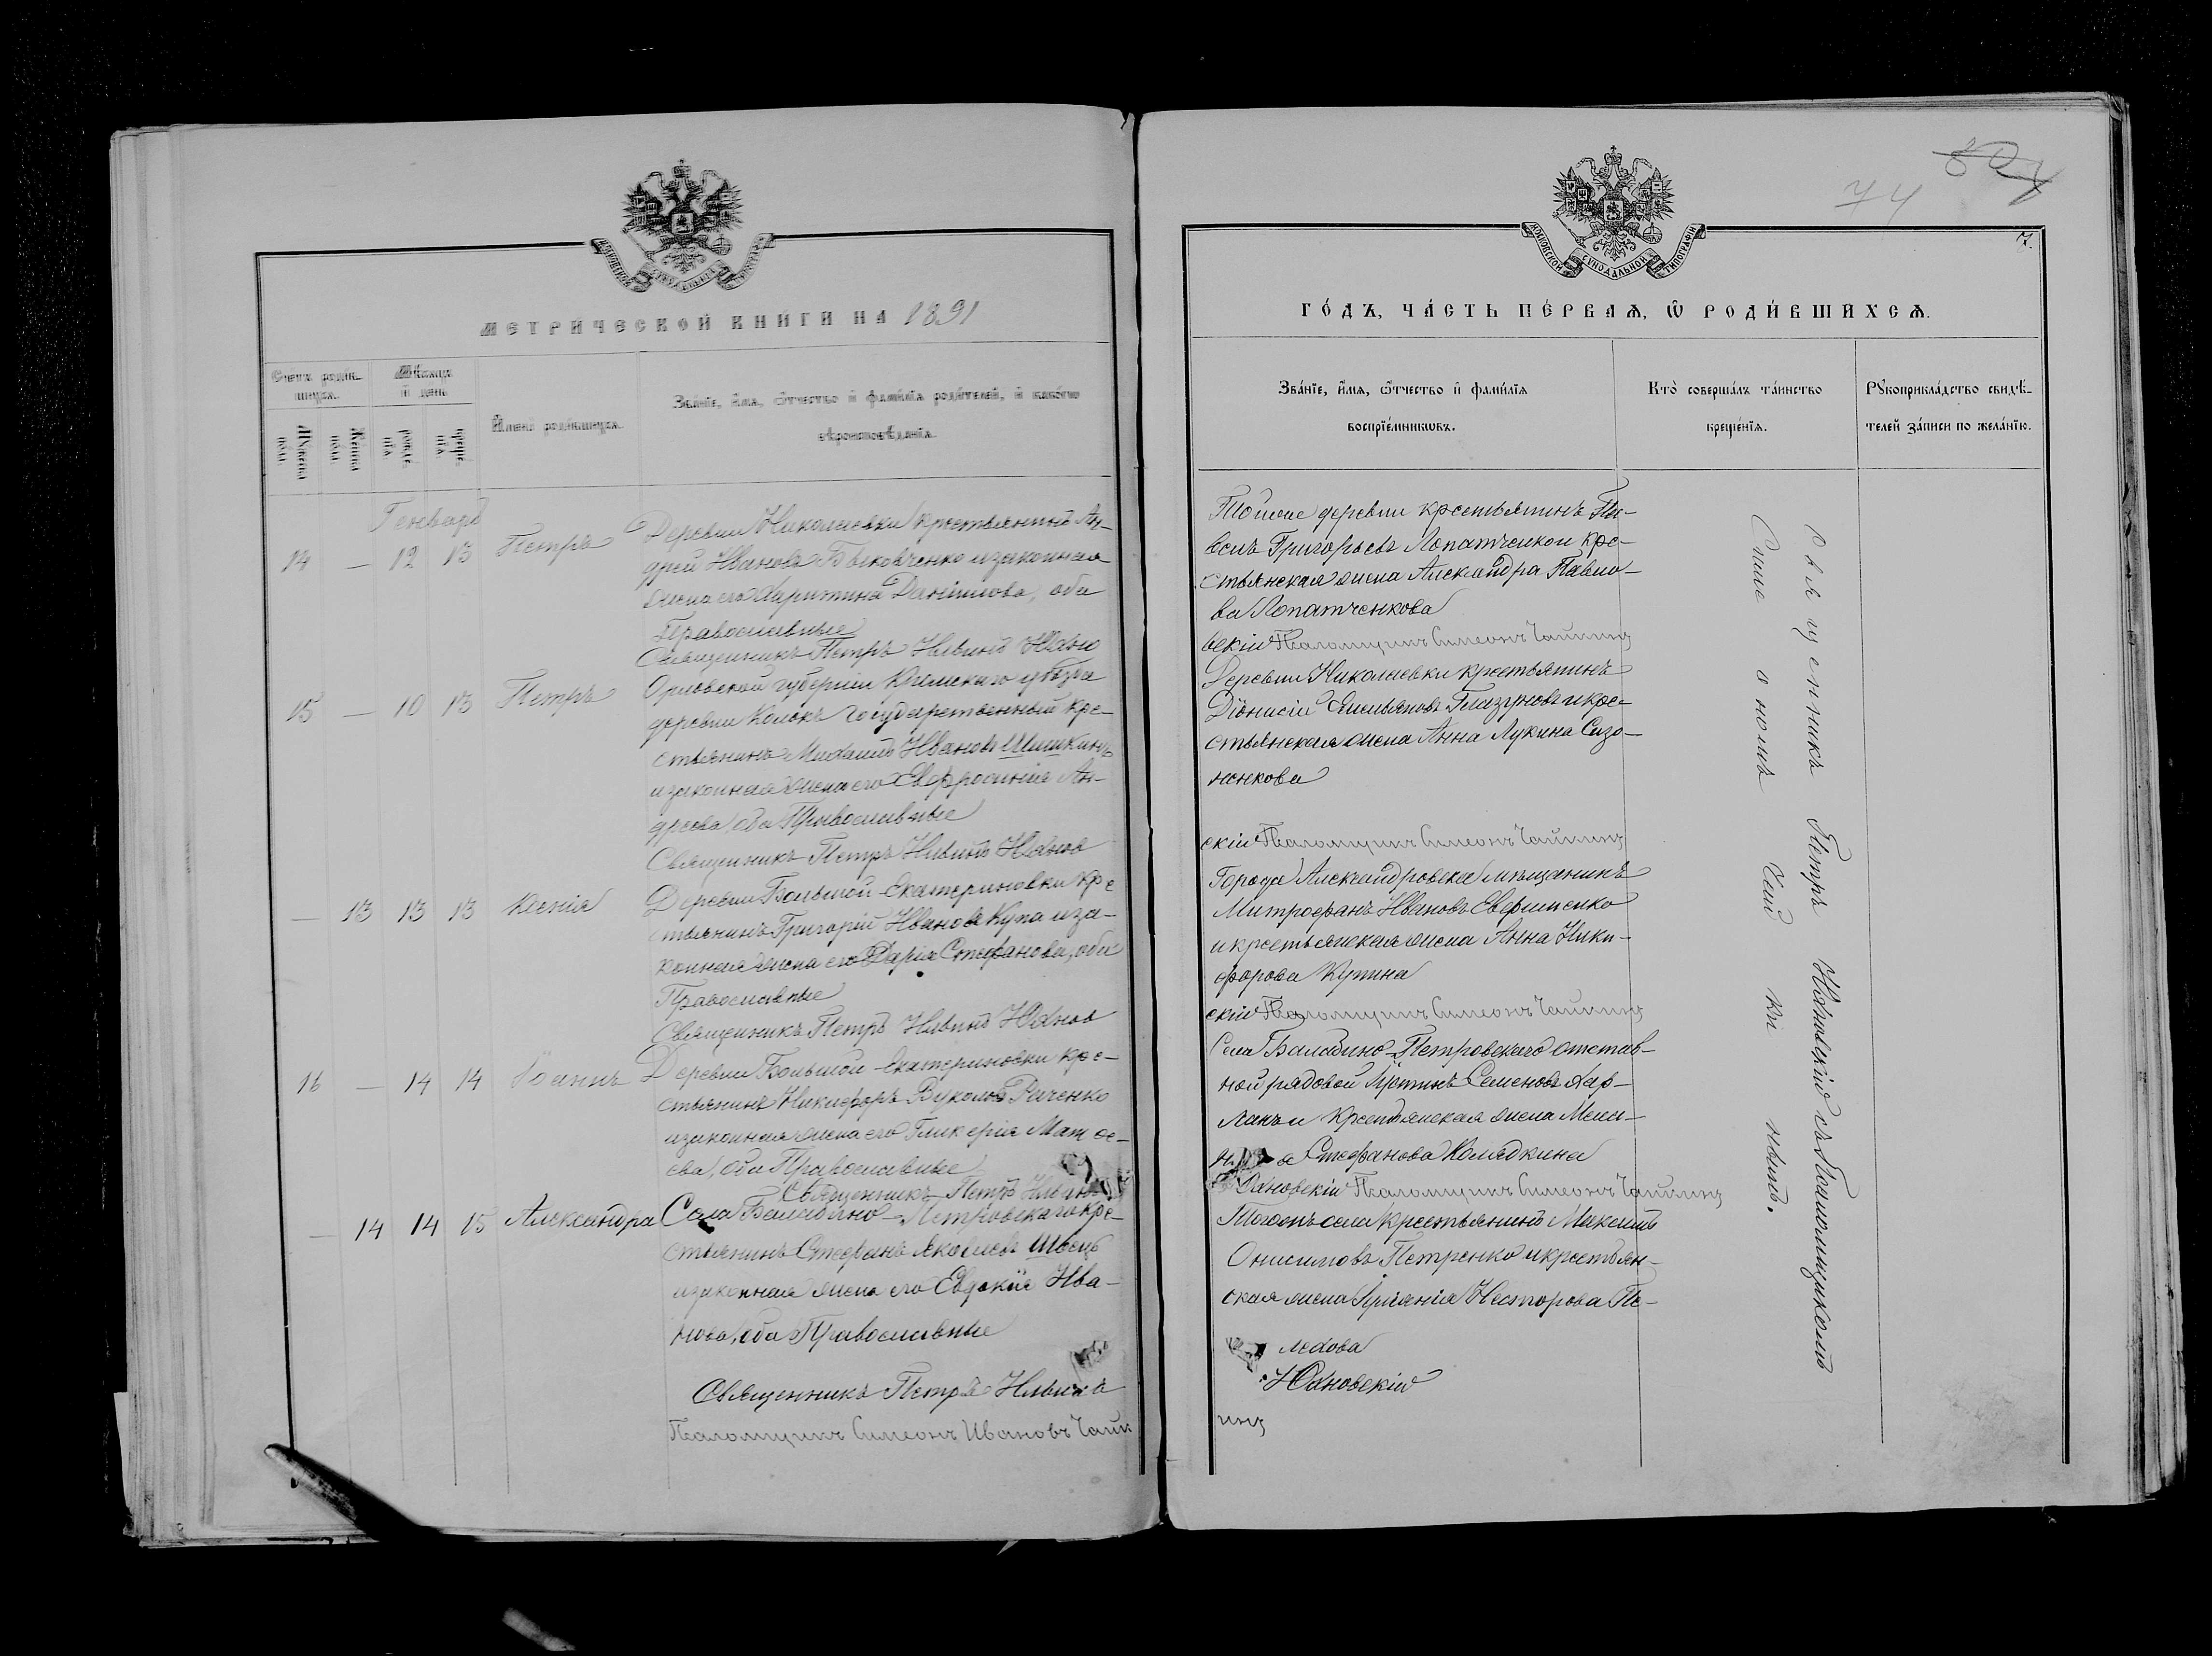 74
7.
МОСКОВСКОЙ СУНОДАЛЬНОЙ ТИПОГРАФІИ
МЕТРИЧЕСКОЙ КНИГИ НА 1891
Счетъ родив-
шихся.
Мѣсяцъ
и день
Мужеска
пола.
Женска
пола.
рожде-
нія
креще-
нія
Имена родившихся.
Званіе, имя, отчество и фамилія родителей, и какого
вѣроисповѣданія.
Генварь
14 — 12 13 Петръ
Деревни Николаевки крестьянинъ Ан-
дрей Ивановъ Быковченко и законная
жена его Харитина Даніилова, оба
Православные
Священникъ Петръ Ильинъ Юхно
15 — 10 13 Петръ
Орловской губерніи уѣзда
деревни Колокъ государственный кре-
стьянинъ Михаилъ Ивановъ Шишкинъ
и законная жена его Евфросинія Ан-
дреева, оба Православные
Священникъ Петръ Ильинъ Юхнов
— 13 13 13 Ксенія
Деревни Большой-Екатериновки кре
стьянинъ Григорій Ивановъ Купа и за-
конная жена его Дарія Стефанова, оба
Православные
Священникъ Петръ Ильинъ Юхнов
16 — 14 14 Іоаннъ
Деревни Большой-Екатериновки кре-
стьянинъ Никифоръ Вуколовъ
и законная жена его Гликерія Матѳе-
ева, оба Православные
Священникъ Петръ Ильинъ
— 14 14 15 Александра
Села Балабино-Петровскаго кре-
стьянинъ Стефанъ Яковлевъ Швецъ
и законная жена его Евдокія Ива-
нова, оба Православные
Священникъ Петръ Ильинъ
Псаломщикъ Симеонъ Ивановъ Чайк
ГОДЪ, ЧАСТЬ ПЕРВАЯ, Ѡ РОДИВШИХСЯ.
Званіе, имя, отчество и фамилія
воспріемниковъ.
Кто совершалъ таинство
крещенія.
Рукоприкладство свидѣ-
телей записи по желанію.
Той же деревни крестьянинъ Па-
велъ Григорьевъ Лопатченко и кре-
стьянская жена Александра Павло-
ва Лопатченкова
вскій Псаломщикъ Симеонъ Чайкинъ
Деревни Николаевки крестьянинъ
Діонисій Емельяновъ Глазуновъ и кре-
стьянская жена Анна Лукина Сизо-
ненкова
скій Псаломщикъ Симеонъ Чайкинъ
Города Александровска мѣщанинъ
Митрофанъ Ивановъ
и крестьянская жена Анна Ники-
форова Купина
скій Псаломщикъ Симеонъ Чайкинъ
Села Балабино-Петровскаго отстав-
ной рядовой Іустинъ Семеновъ Хар-
ланъ и крестьянская жена
Стефанова Колядкина
Юхновскій Псаломщикъ Симеонъ Чайкинъ
Того же села крестьянинъ Максимъ
Онисимовъ Петренко и крестьян-
ская жена Іуліанія Несторова Пе-
лехова
Юхновскій
инъ
Священникъ Петръ Юхновскій съ Псаломщикомъ
Симеономъ Чайкинымъ.